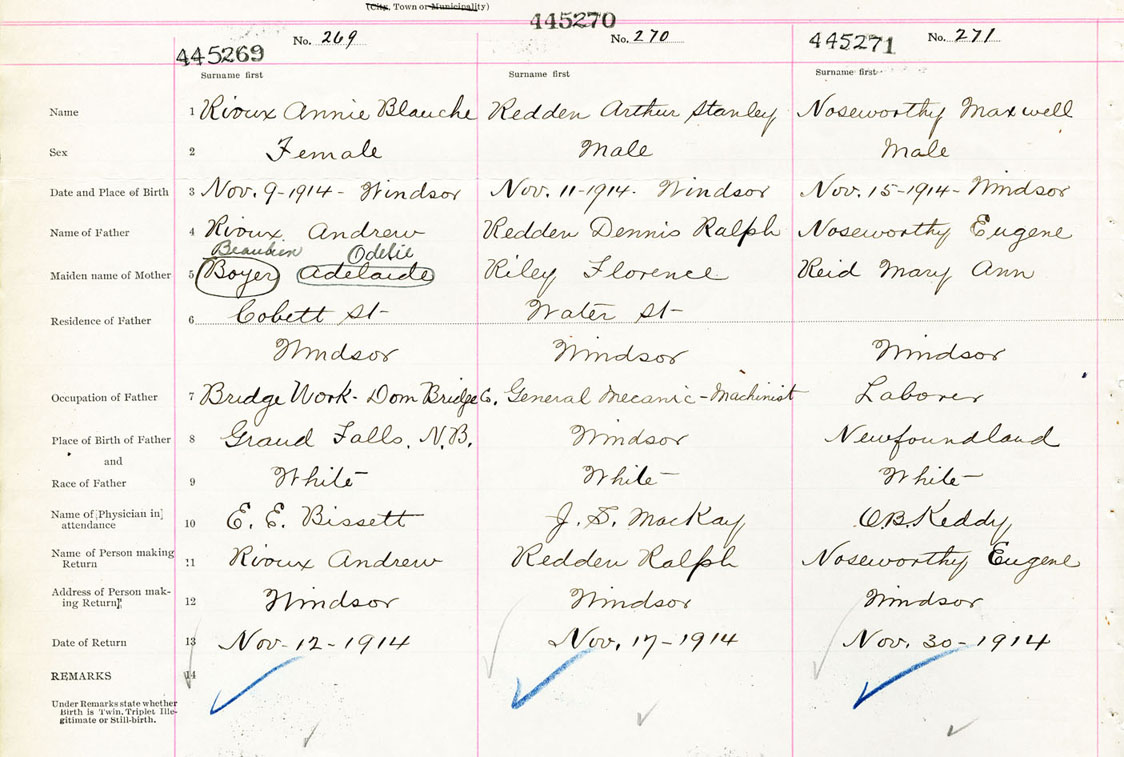 (City, Town or Municipality)
445269 No. 269 445270 No. 270 445271 No. 271
Surname first Surname first Surname first
Name 1 Rioux Annie Blauche Redden Arthur Stanley Noseworthy Maxwell
Sex 2 Female Male Male
Date and Place of Birth 3 Nov. 9-1914- Windsor Nov. 11-1914. Windsor Nov. 15-1914- Windsor
Name of Father 4 Rioux Andrew Redden Dennis Ralph Noseworthy Eugene
Beaubien Odelie
Maiden name of Mother 5 Boyer Adelaide Riley Florence Reid Mary Ann
Residence of Father 6 Cobett St- Water St-
Windsor Windsor Windsor
Occupation of Father 7 Bridge Work- Dom Bridge Co. General Mecanic-Machinist Laborer
Place of Birth of Father 8 Grand Falls, N.B. Windsor Newfoundland
and
Race of Father 9 White White White
Name of [Physician in] attendance 10 E. E. Bissett J. S. MacKay O.B. Keddy
Name of Person making Return 11 Rioux Andrew Redden Ralph Noseworthy Eugene
Address of Person making Return 12 Windsor Windsor Windsor
Date of Return 13 Nov-12-1914 Nov. 17-1914 Nov. 30-1914
REMARKS 14
Under Remarks state whether
Birth is Twin, Triplet Ille-
gitimate or Still-birth.